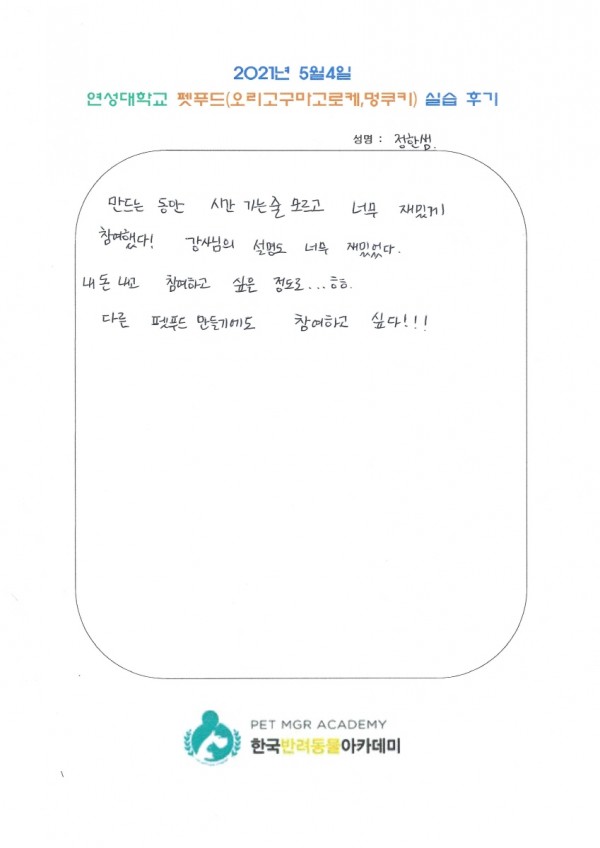 2021년 5월4일
연성대학교 펫푸드(오리고구마고로케,멍쿠키) 실습 후기
성명 : 정한샘.
만드는 동안 시간 가는줄 모르고 너무 재밌게
참여했다! 강사님의 설명도 너무 재밌었다.
내 돈 내고 참여하고 싶은 정도로...ㅎㅎ.
다른 펫푸드 만들기에도 참여하고 싶다!!!
PET MGR ACADEMY
한국반려동물아카데미